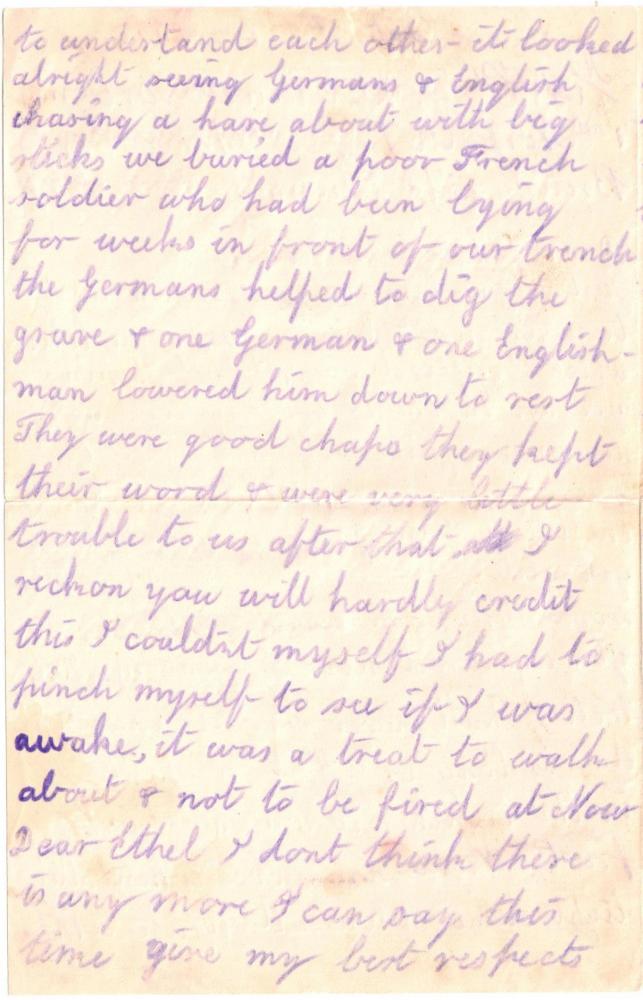 to understand each other - it looked
alright seeing Germans & English
chasing a hare about with big
sticks we buried a poor French
soldier who had been lying
for weeks in front of our trench
the Germans helped to dig the
grave & one German & one English-
man lowered him down to rest
They were good chaps they kept
their word & were very little
trouble to us after that I
reckon you will hardly credit
this I couldnt myself I had to
pinch myself to see if I was
awake, it was a treat to walk
about & not to be fired at Now
Dear Ethel I dont think there
is any more I can say this
time give my best respects